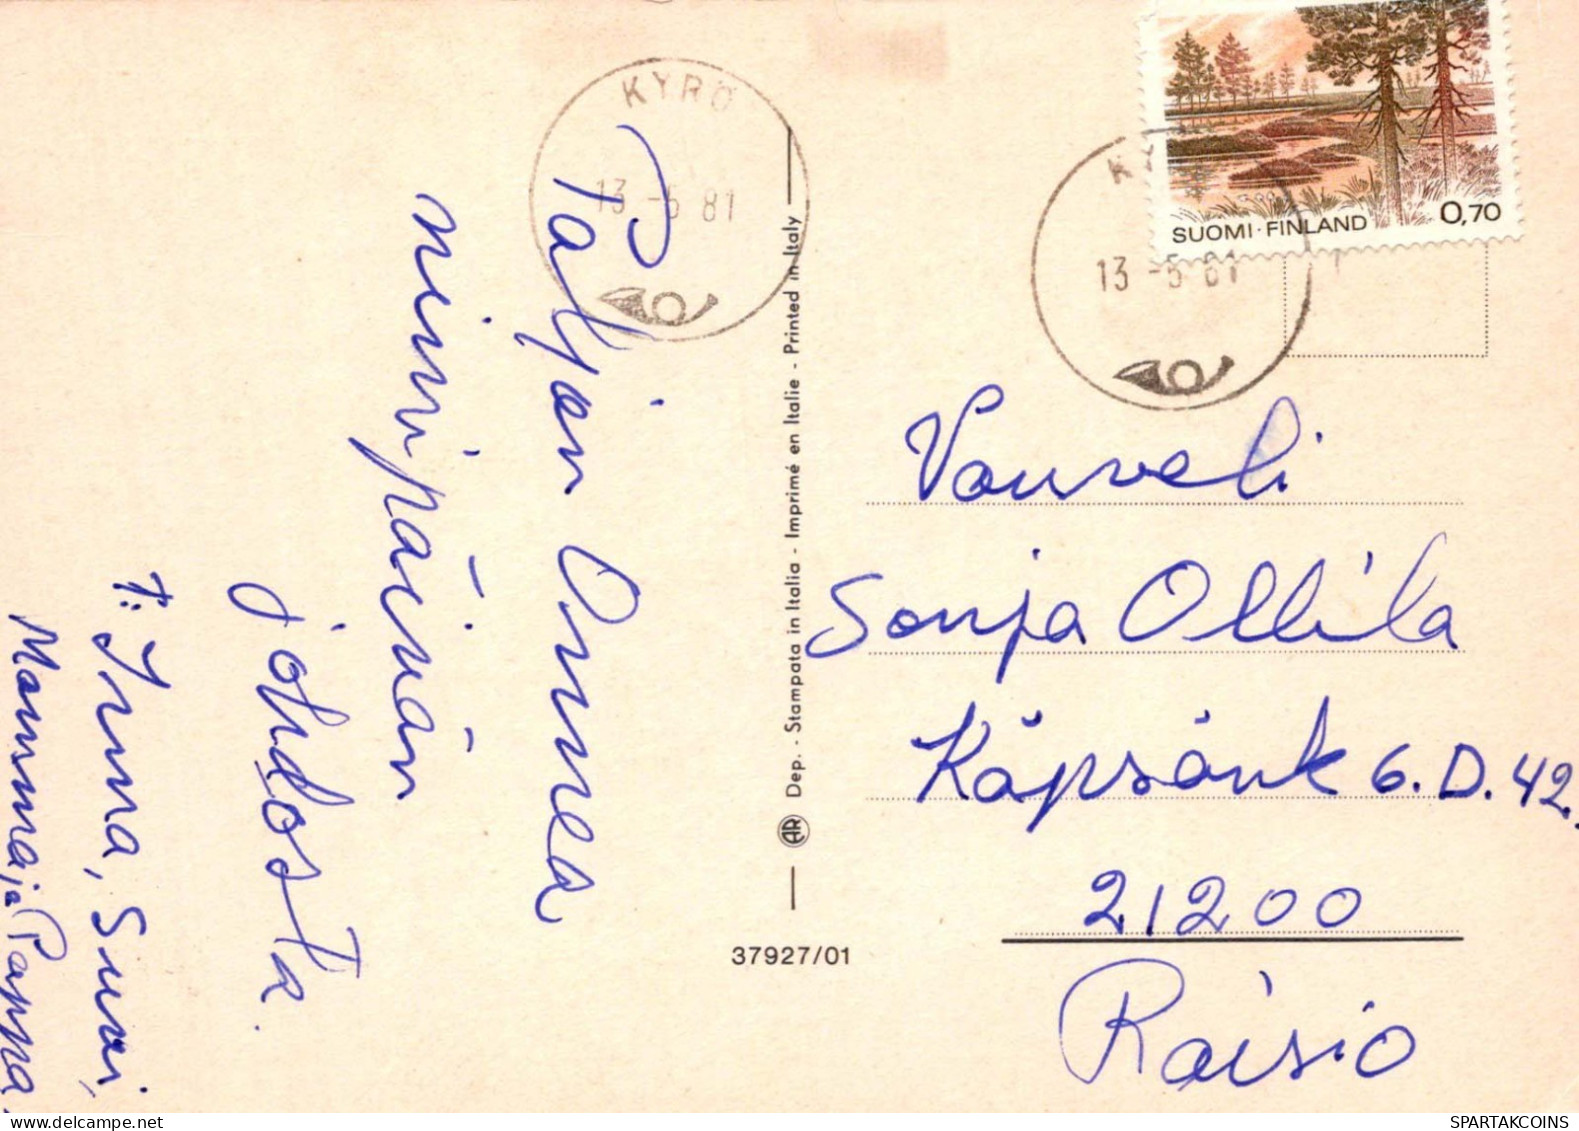 KYRÖ
13 -5 81
Paljon Onnea
nimipäivän
johdosta.
t: Irma, Suvi,
Mamma ja Pappa.
Dep. - Stampata in Italia - Imprimé en Italie - Printed in Italy
AR
37927/01
SUOMI · FINLAND 0,70
13 -5 81
Vauveli
Sonja Ollila
Käpsänk 6. D. 42.
21200
Raisio
delcampe.net
SPARTAKCOINS